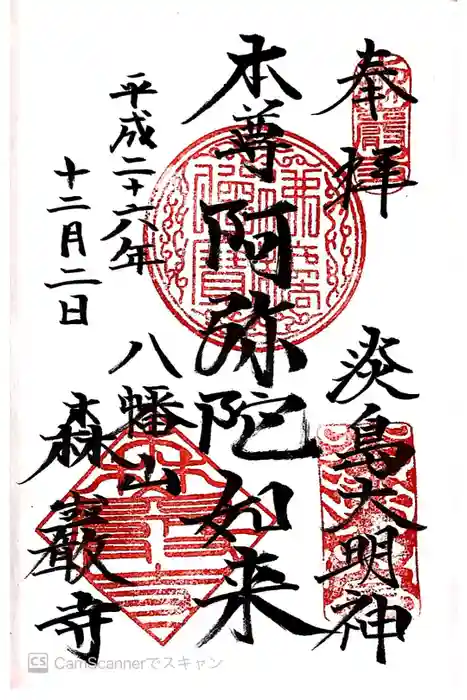 奉拝
淡島大明神
本尊阿弥陀如来
平成二十六年
十二月二日
八幡山
森巖寺
CS CamScannerでスキャン